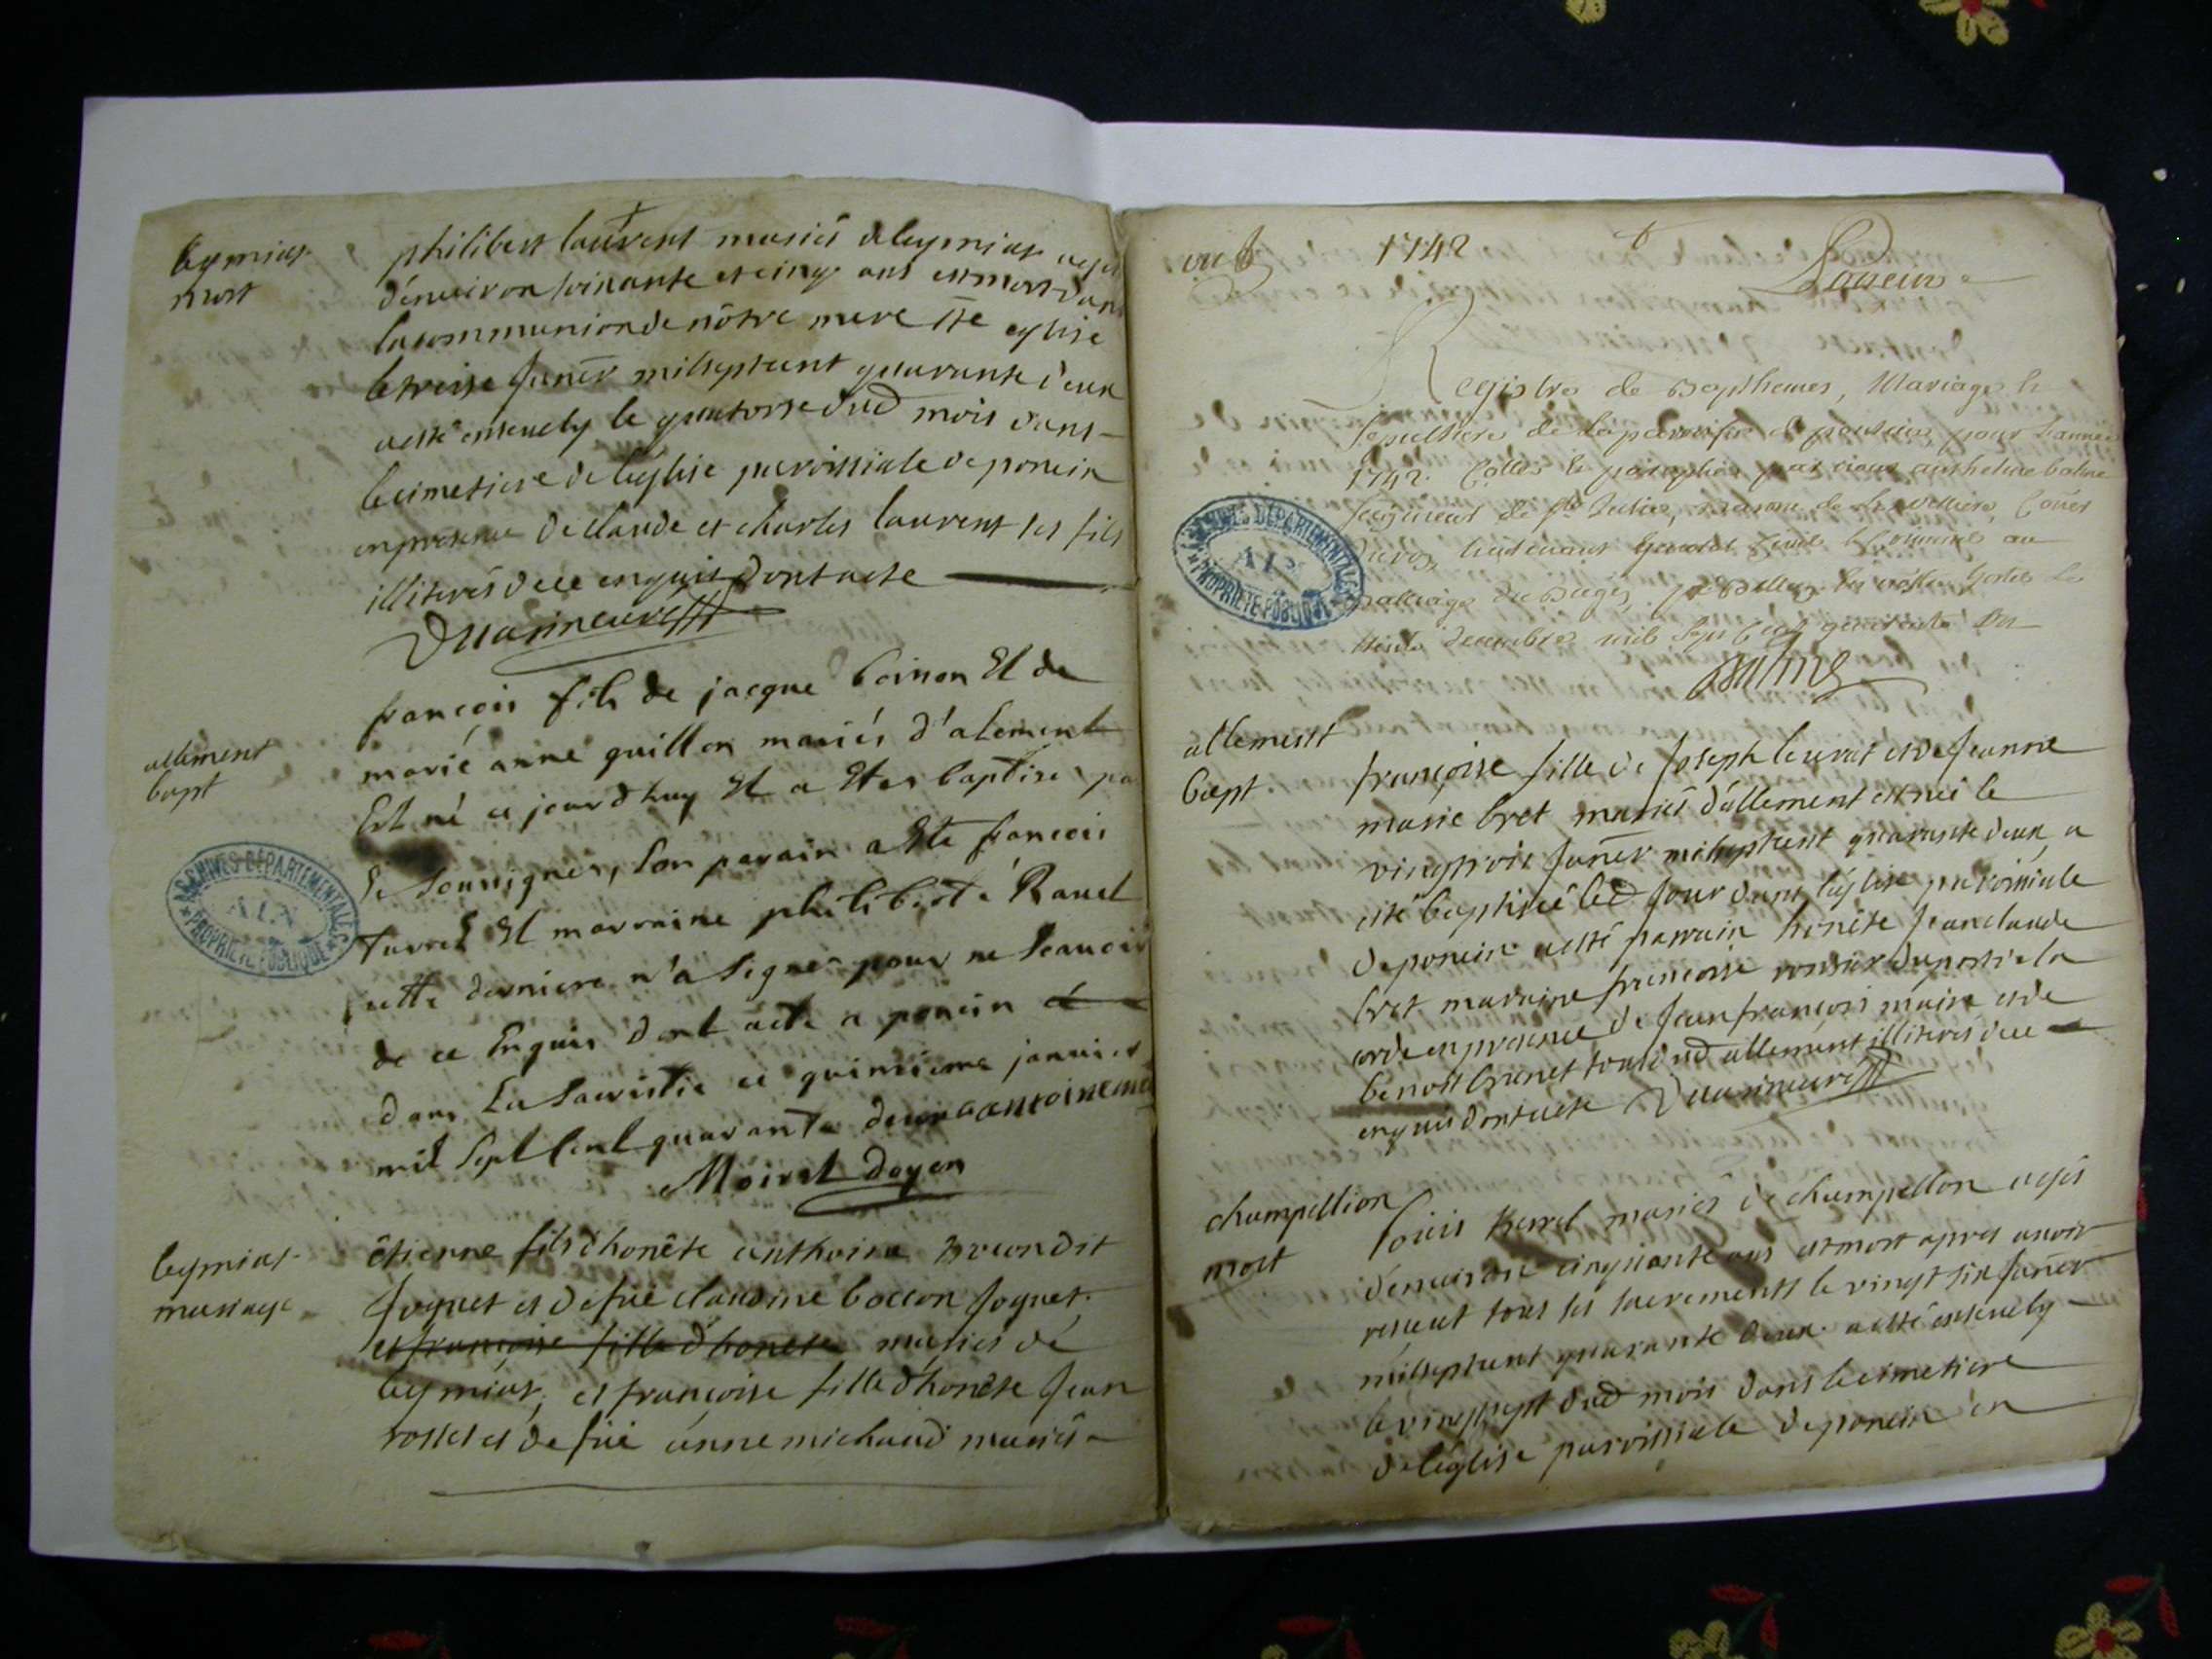 leymiat
mort
philibert laurent mariés de leymiat agés
d'enuiron soixante et cinq ans est mort dans
la communion de nôtre mere ste eglise
le treise janēr milseptcent quarante deux
a esté enseuely le quatorse dud mois dans
le cimetiere de l'eglise paroissiale de poncin
en presence de claude et charles laurent ses fils
illiterés de ce enquis dont acte
allement
bapt
françois fils de jacque boinon Et de
marie anne guillon mariés d'alement
Est né ce jourdhuy Et a Etes baptisé pa
Le Soussigner, Son parain a Ete francois
Turrel Et marraine philiberte Ravel
cette derniere n'a signer pour ne Scauoir
de ce Enquis dont acte a poncin
dans La Sacristie ce quinsieme januier
mil Sept Cent quarante deux antoine
Moiret doyen
leymiat
mariage
êtienne fils d'honête anthoine dit
Joguet et de füe claudine bocon Joguet
et françoise fille d'honete mariés de
leymiat, et françoise fille d'honête Jean
rosset et de füe anne michaud mariés
1742
Registre de Bapthemes, Mariages &
sepultures de la parroisse de poncin pour l'année
1742. Cottés & paraphés par nous anthelme balme
seigneur de ste Julie,
lieutenant general Ciuil & Criminel au
balliage du Bugey,
decembre mil sept cent quarante un
ARCHIVES DÉPARTEMENTALES
AIN
PROPRIÉTÉ PUBLIQUE
allement
bapt.
françoise fille de Joseph leurat et de Jeanne
marie bret mariés d'allement est née le
vingtrois Janēr milseptcent quarante deux, a
esté baptisée led Jour dans l'église paroissiale
de poncin a esté parrain honête Jean claude
bret maraine françoise
en presence de Jean françois maire et de
benoit brunet tous dud allement illiterés de ce
enquis dont acte
champellion
mort
louis mariés de champellon agés
d'enuiron cinquante ans est mort apres auoir
receut tous ses sacrements le vingt six Janēr
milseptcent quarante deux a esté enseuely
le vingtsept dud mois dans le cimetiere
de l'église paroissiale de poncin en
ARCHIVES DÉPARTEMENTALES
AIN
PROPRIÉTÉ PUBLIQUE